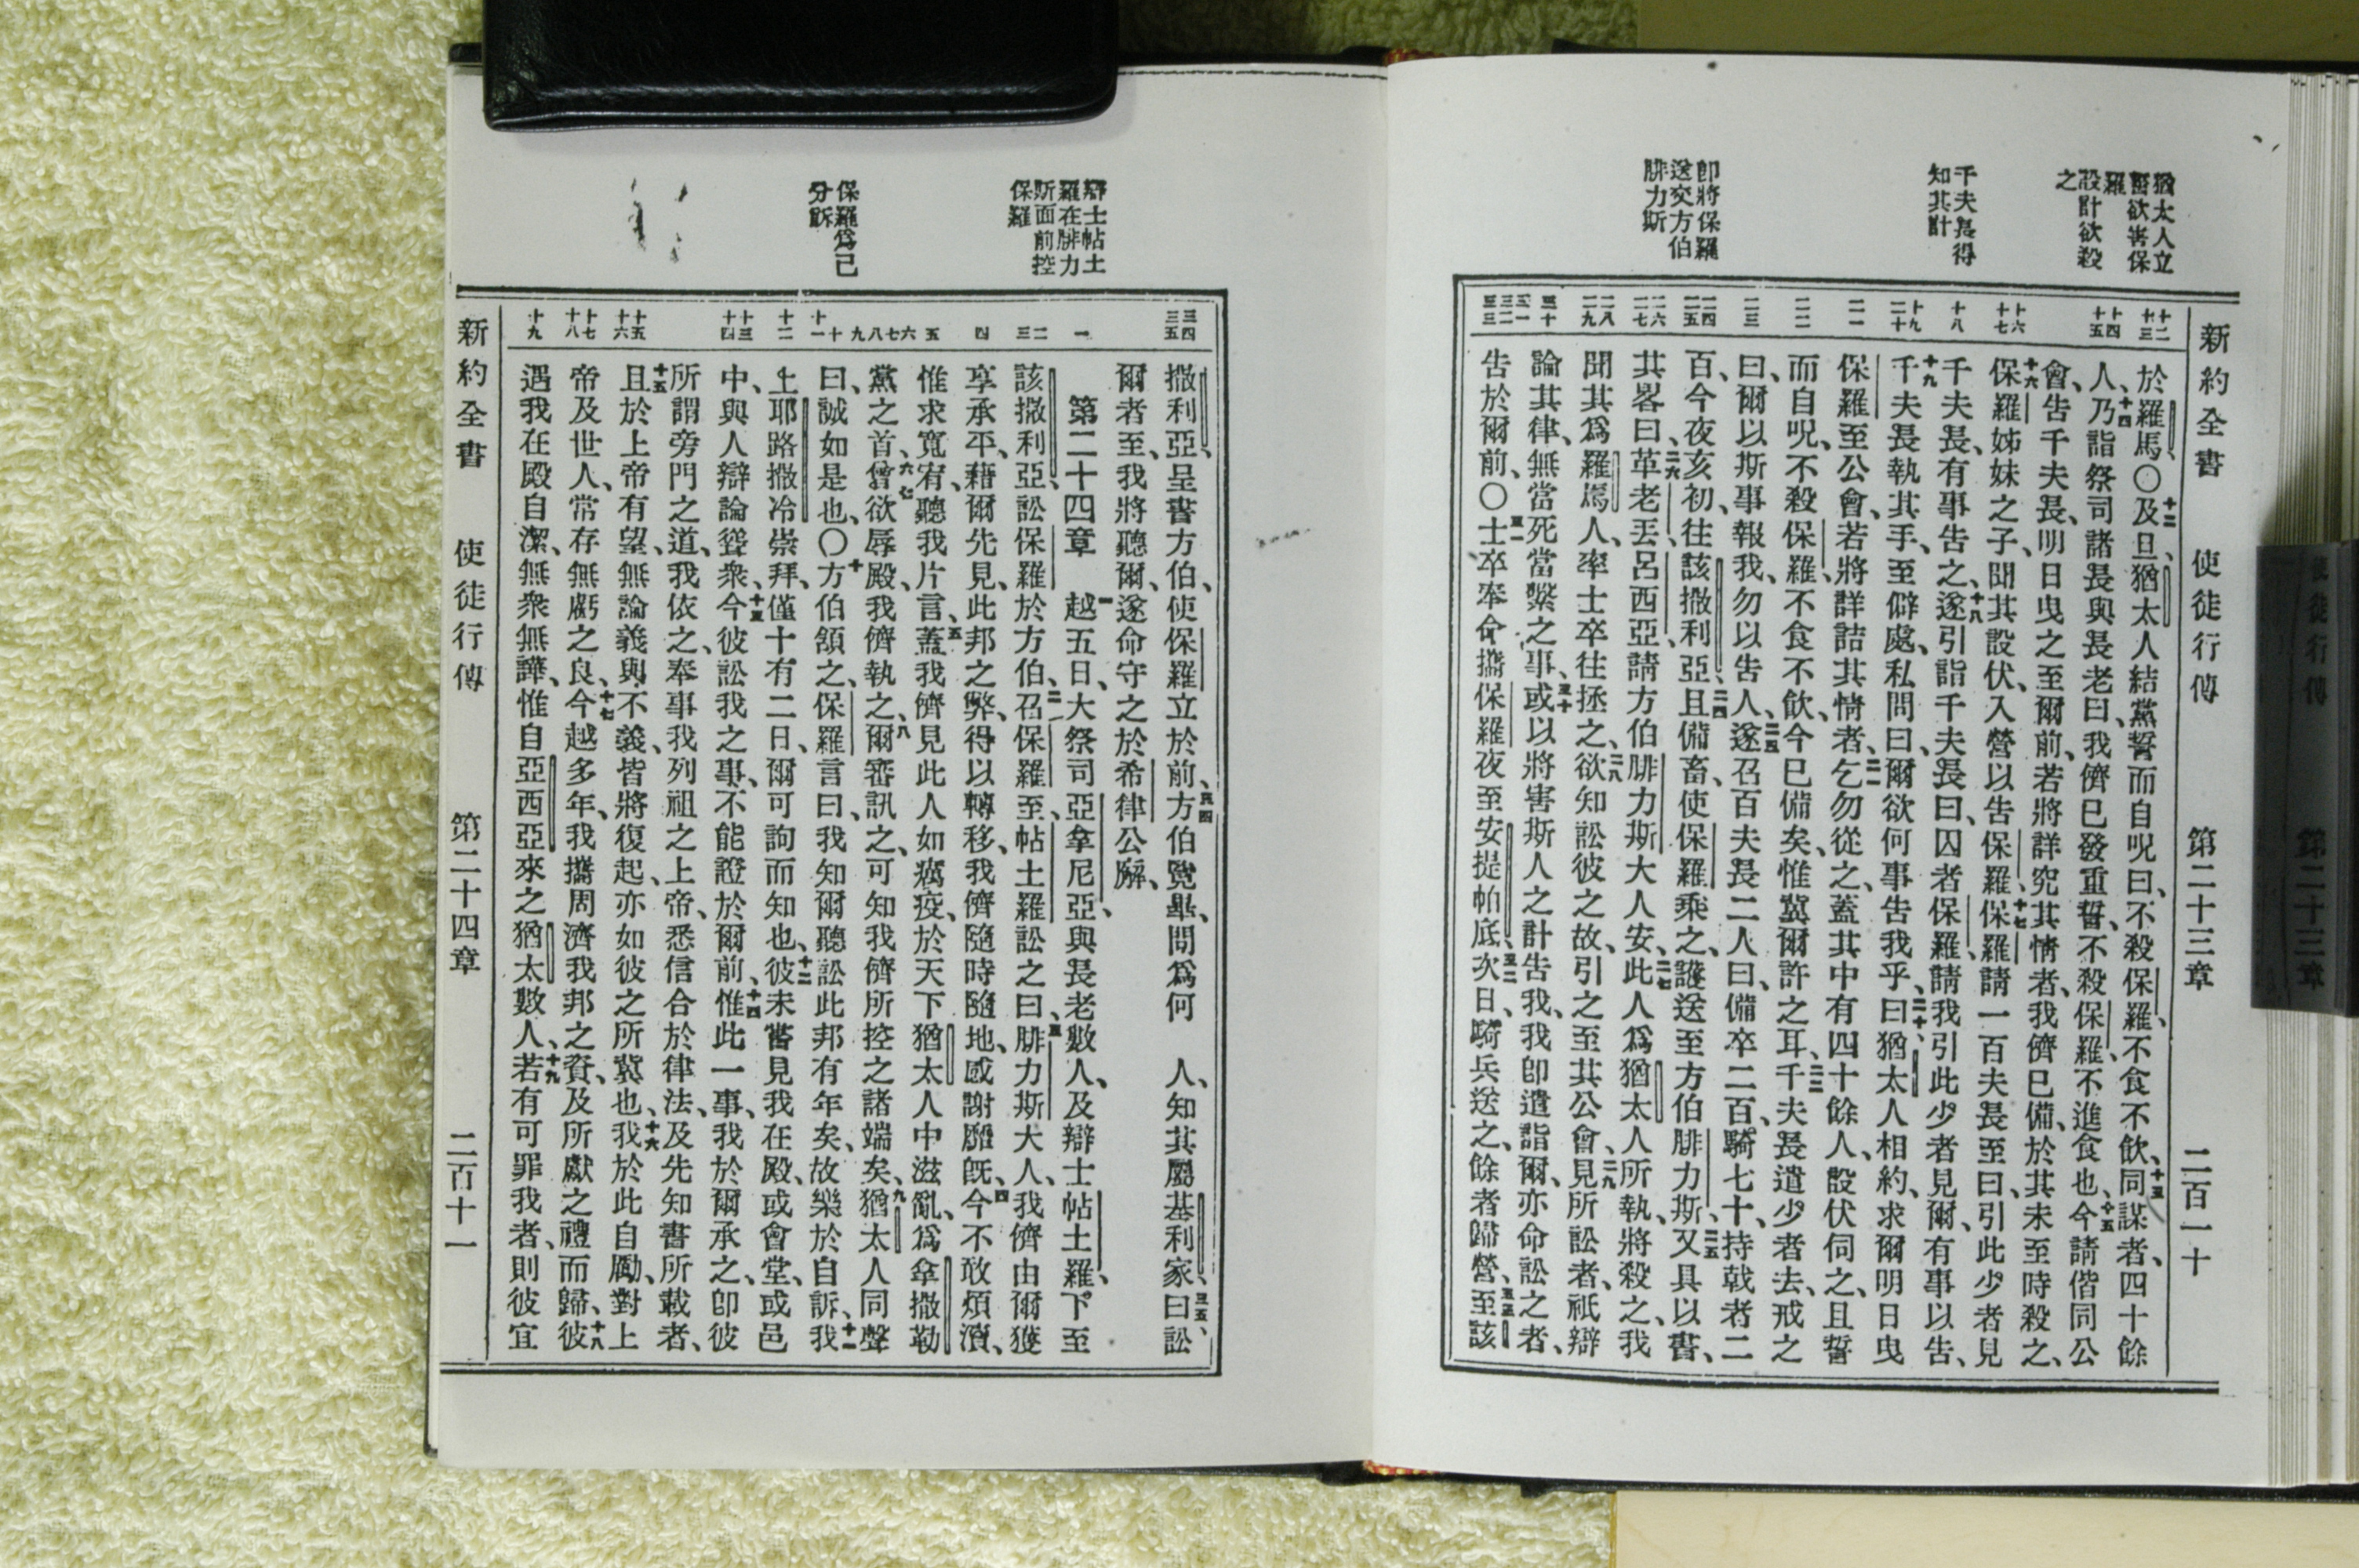 猶太人立
誓欲害保
羅
設計欲殺
之
千夫長得
知其計
即將保羅
送交方伯
腓力斯
新約全書 使徒行傳 第二十三章 二百一十
十二 十三 十四 十五 十六 十七 十八 十九 二十 二一 二二 二三 二四 二五 二六 二七 二八 二九 三十 三一 三二 三三
於羅馬、〇十二及旦、猶太人結黨誓而自呪曰、不殺保羅、不食不飲、十三同謀者、四十餘
人、十四乃詣祭司諸長與長老曰、我儕已發重誓、不殺保羅、不進食也、十五今請偕同公
會、告千夫長、明日曳之至爾前、若將詳究其情者、我儕已備、於其未至時殺之、
十六保羅姊妹之子、聞其設伏、入營以告保羅、十七保羅請一百夫長至曰、引此少者見
千夫長、有事告之、十八遂引詣千夫長曰、囚者保羅、請我引此少者見爾、有事以告、
十九千夫長執其手、至僻處、私問曰、爾欲何事告我乎、二十曰猶太人相約、求爾明日曳
保羅至公會、若將詳詰其情者、二一乞勿從之、蓋其中有四十餘人、設伏伺之、且誓
而自呪、不殺保羅、不食不飲、今已備矣、惟冀爾許之耳、二二千夫長遣少者去、戒之
曰、爾以斯事報我、勿以告人、二三遂召百夫長二人曰、備卒二百、騎七十、持戟者二
百、今夜亥初、往該撒利亞、二四且備畜、使保羅乘之、護送至方伯腓力斯、二五又具以書、
其畧曰、二六革老丟呂西亞、請方伯腓力斯大人安、二七此人爲猶太人所執、將殺之、我
聞其爲羅馬人、率士卒往拯之、二八欲知訟彼之故、引之至其公會、二九見所訟者、祇辯
論其律、無當死當繫之事、三十或以將害斯人之計告我、我卽遣詣爾、亦命訟之者、
告於爾前、〇三一士卒奉命攜保羅夜至安提帕底、三二次日、騎兵送之、餘者歸營、三三至該
辯士帖土
羅在腓力
斯面前控
保羅
保羅爲己
分訴
三四 三五 一 二 三 四 五 六 七 八 九 十 十一 十二 十三 十四 十五 十六 十七 十八 十九
撒利亞、呈書方伯、使保羅立於前、三四方伯覽畢、問爲何 人、知其屬基利家、三五曰、訟
爾者至、我將聽爾、遂命守之於希律公廨、
第二十四章 一越五日、大祭司亞拿尼亞、與長老數人、及辯士帖土羅、下至
該撒利亞、訟保羅於方伯、二召保羅至、帖土羅訟之曰、三腓力斯大人、我儕由爾獲
享承平、藉爾先見、此邦之弊、得以轉移、我儕隨時隨地、感謝靡旣、四今不敢煩瀆、
惟求寬宥、聽我片言、五蓋我儕見此人如癘疫、於天下猶太人中滋亂、爲拿撒勒
黨之首、六曾欲辱殿、我儕執之、八爾審訊之、可知我儕所控之諸端矣、九猶太人同聲
曰、誠如是也、〇十方伯頷之、保羅言曰、我知爾聽訟此邦有年矣、故樂於自訴、十一我
上耶路撒冷崇拜、僅十有二日、爾可詢而知也、十二彼未嘗見我在殿、或會堂、或邑
中、與人辯論聳衆、十三今彼訟我之事、不能證於爾前、十四惟此一事、我於爾承之、卽彼
所謂旁門之道、我依之、奉事我列祖之上帝、悉信合於律法、及先知書所載者、
十五且於上帝有望、無論義與不義、皆將復起、亦如彼之所冀也、十六我於此自勵、對上
帝及世人、常存無虧之良、十七今越多年、我攜周濟我邦之資、及所獻之禮而歸、十八彼
遇我在殿自潔、無衆無譁、惟自亞西亞來之猶太數人、十九若有可罪我者、則彼宜
新約全書 使徒行傳 第二十四章 二百十一